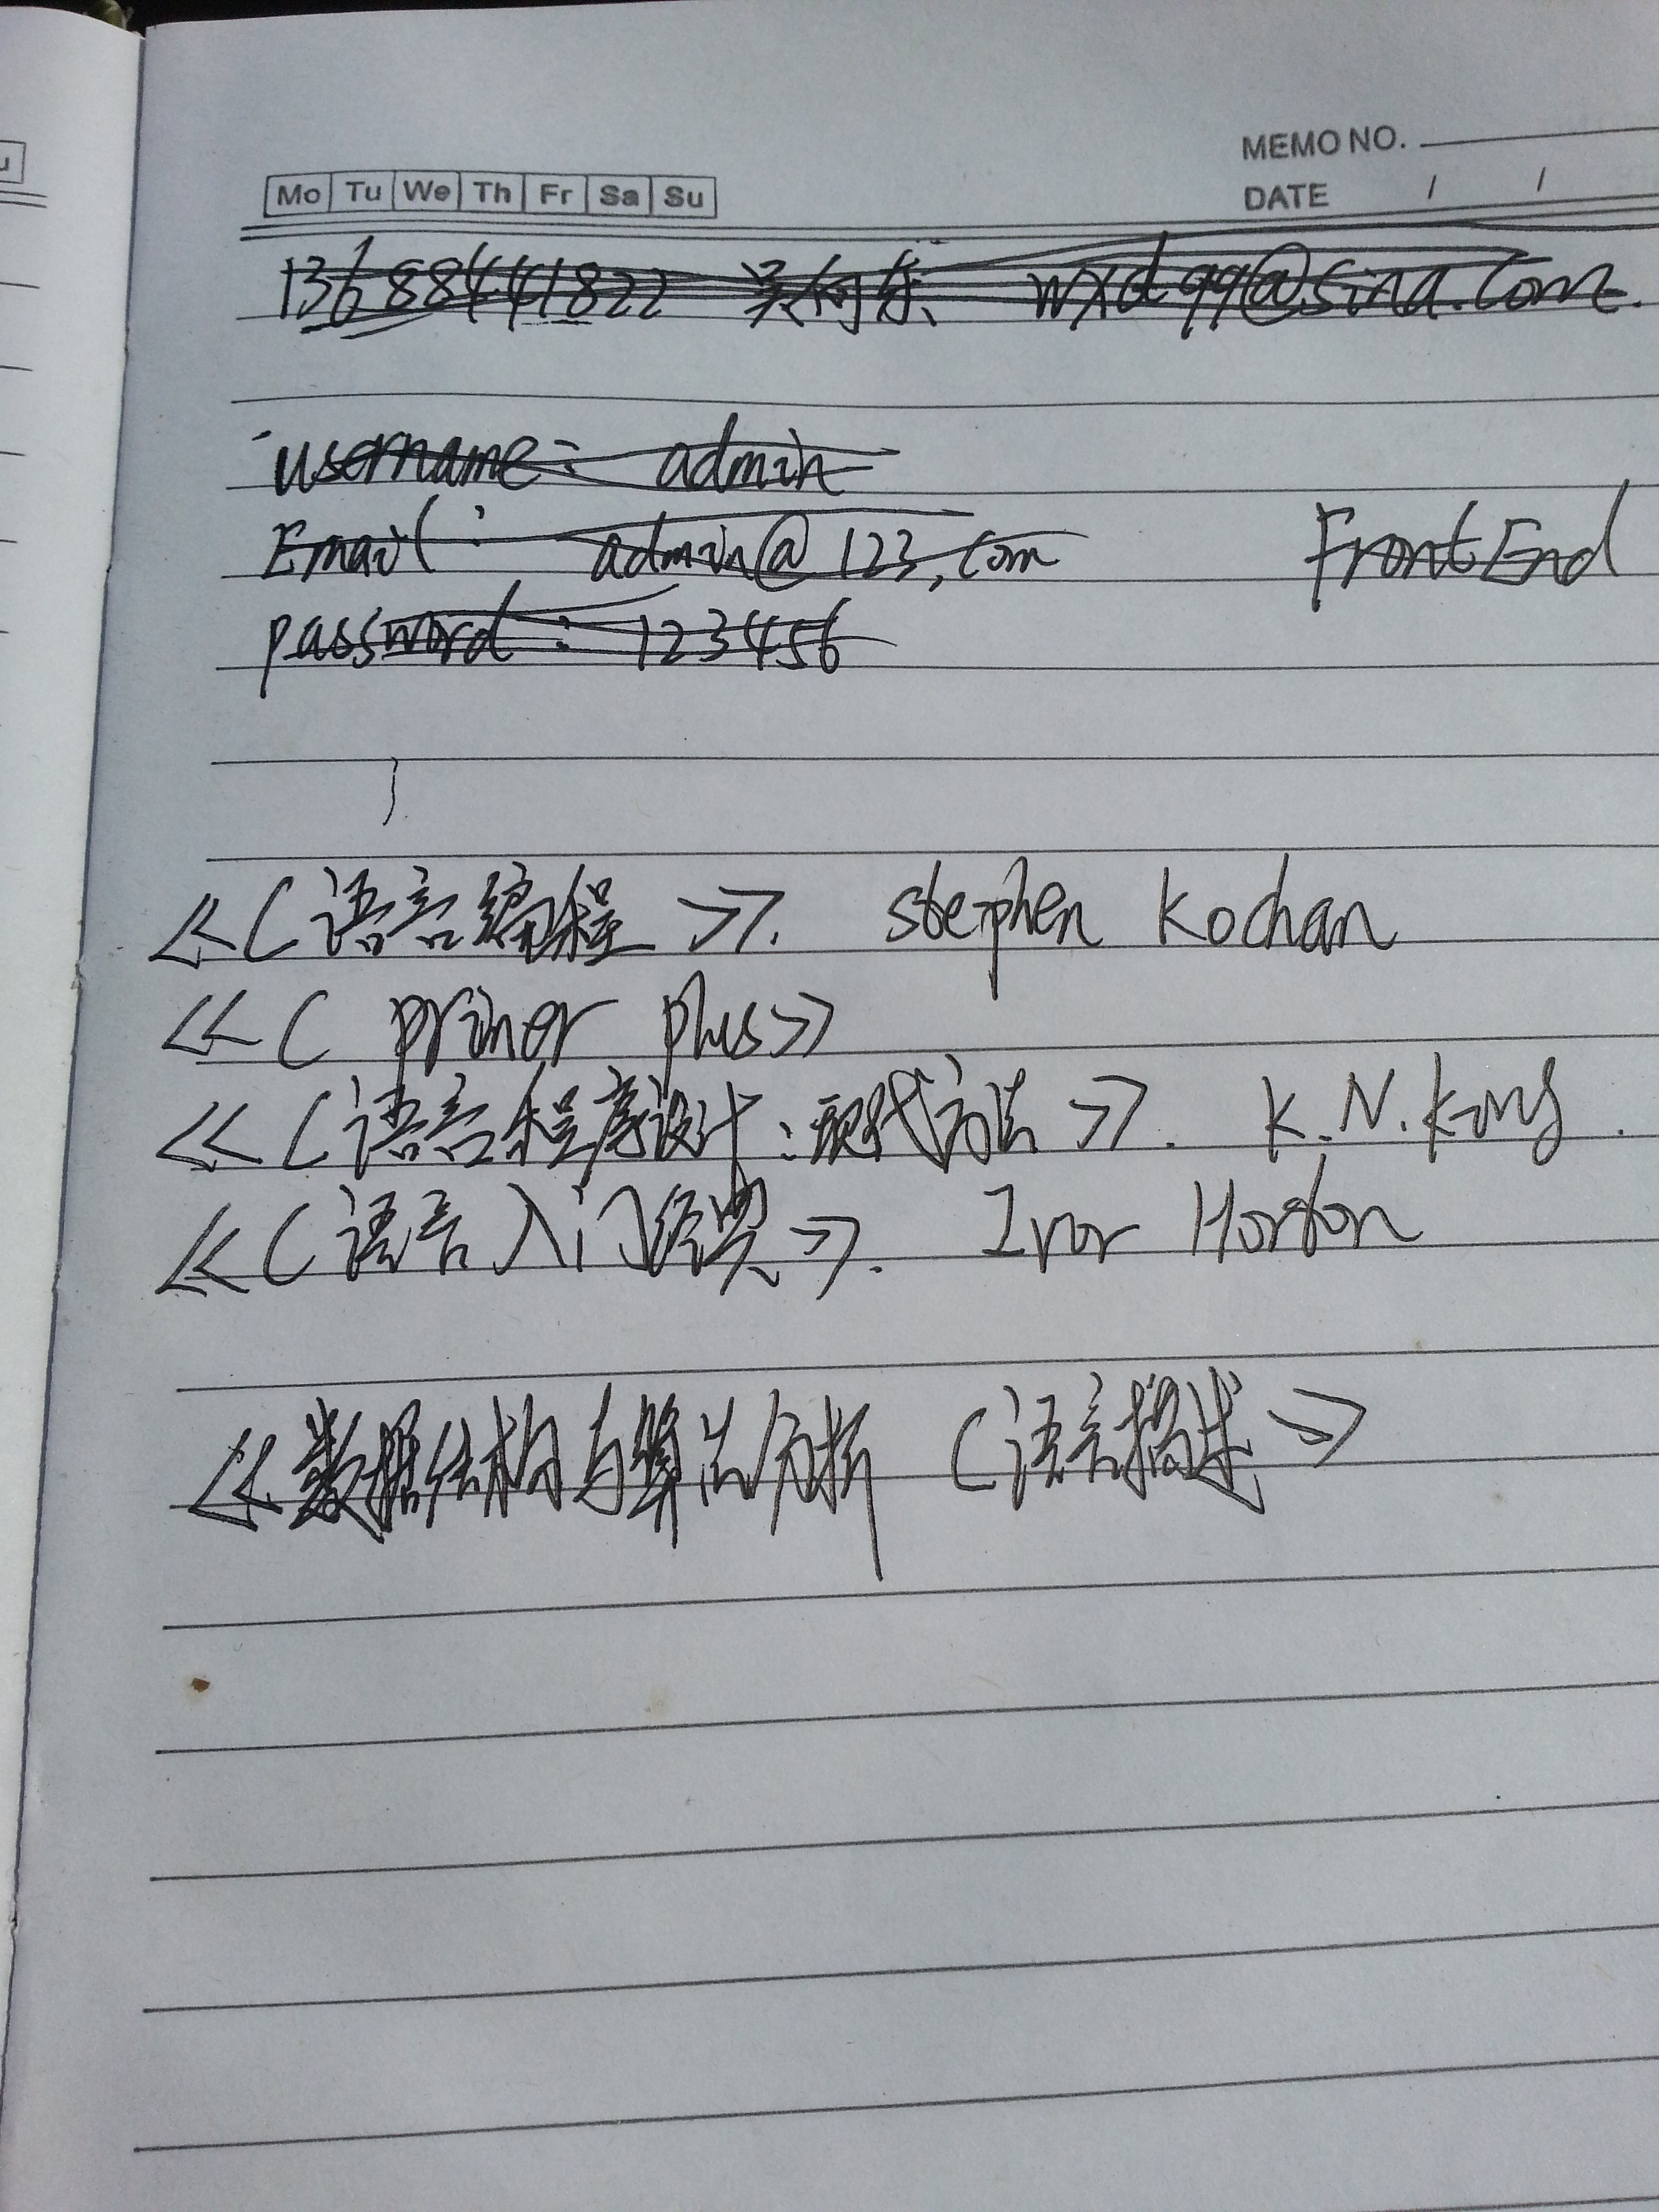 MEMO NO.
Mo Tu We Th Fr Sa Su
DATE / /
wxd99@sina.com.
username: admin
Email: admin@123.com
FrontEnd
password: 123456
<<C语言编程>>. stephen Kochan
<<C primer plus>>
<<C语言程序设计:现代方法>>. K.N.King.
<<C语言入门经典>>. Ivor Horton
<<数据结构与算法分析 C语言描述>>